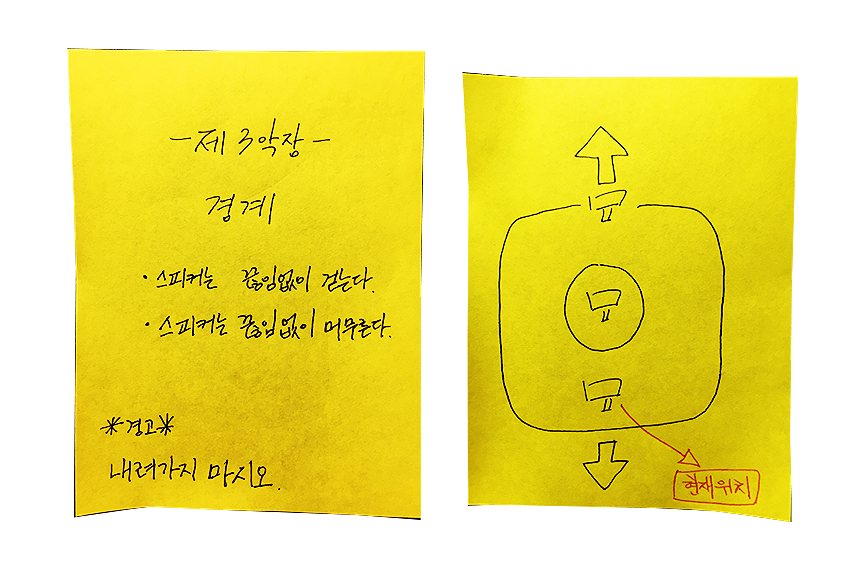 - 제 3악장 -
경계
· 스피커는 끊임없이 걷는다.
· 스피커는 끊임없이 머무른다.
*경고*
내려가지 마시오.
현재위치